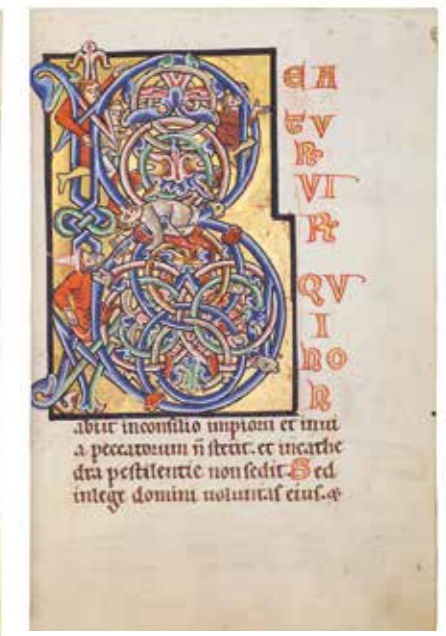 B
E A
T V
R
VI
R
QV
I
NO
N
abiit inconsilio impiorū et inui
a peccatorum n̄ stetit. et incathe
dra pestilentie non sedit. Sed
inlege domini uoluntas eius. &